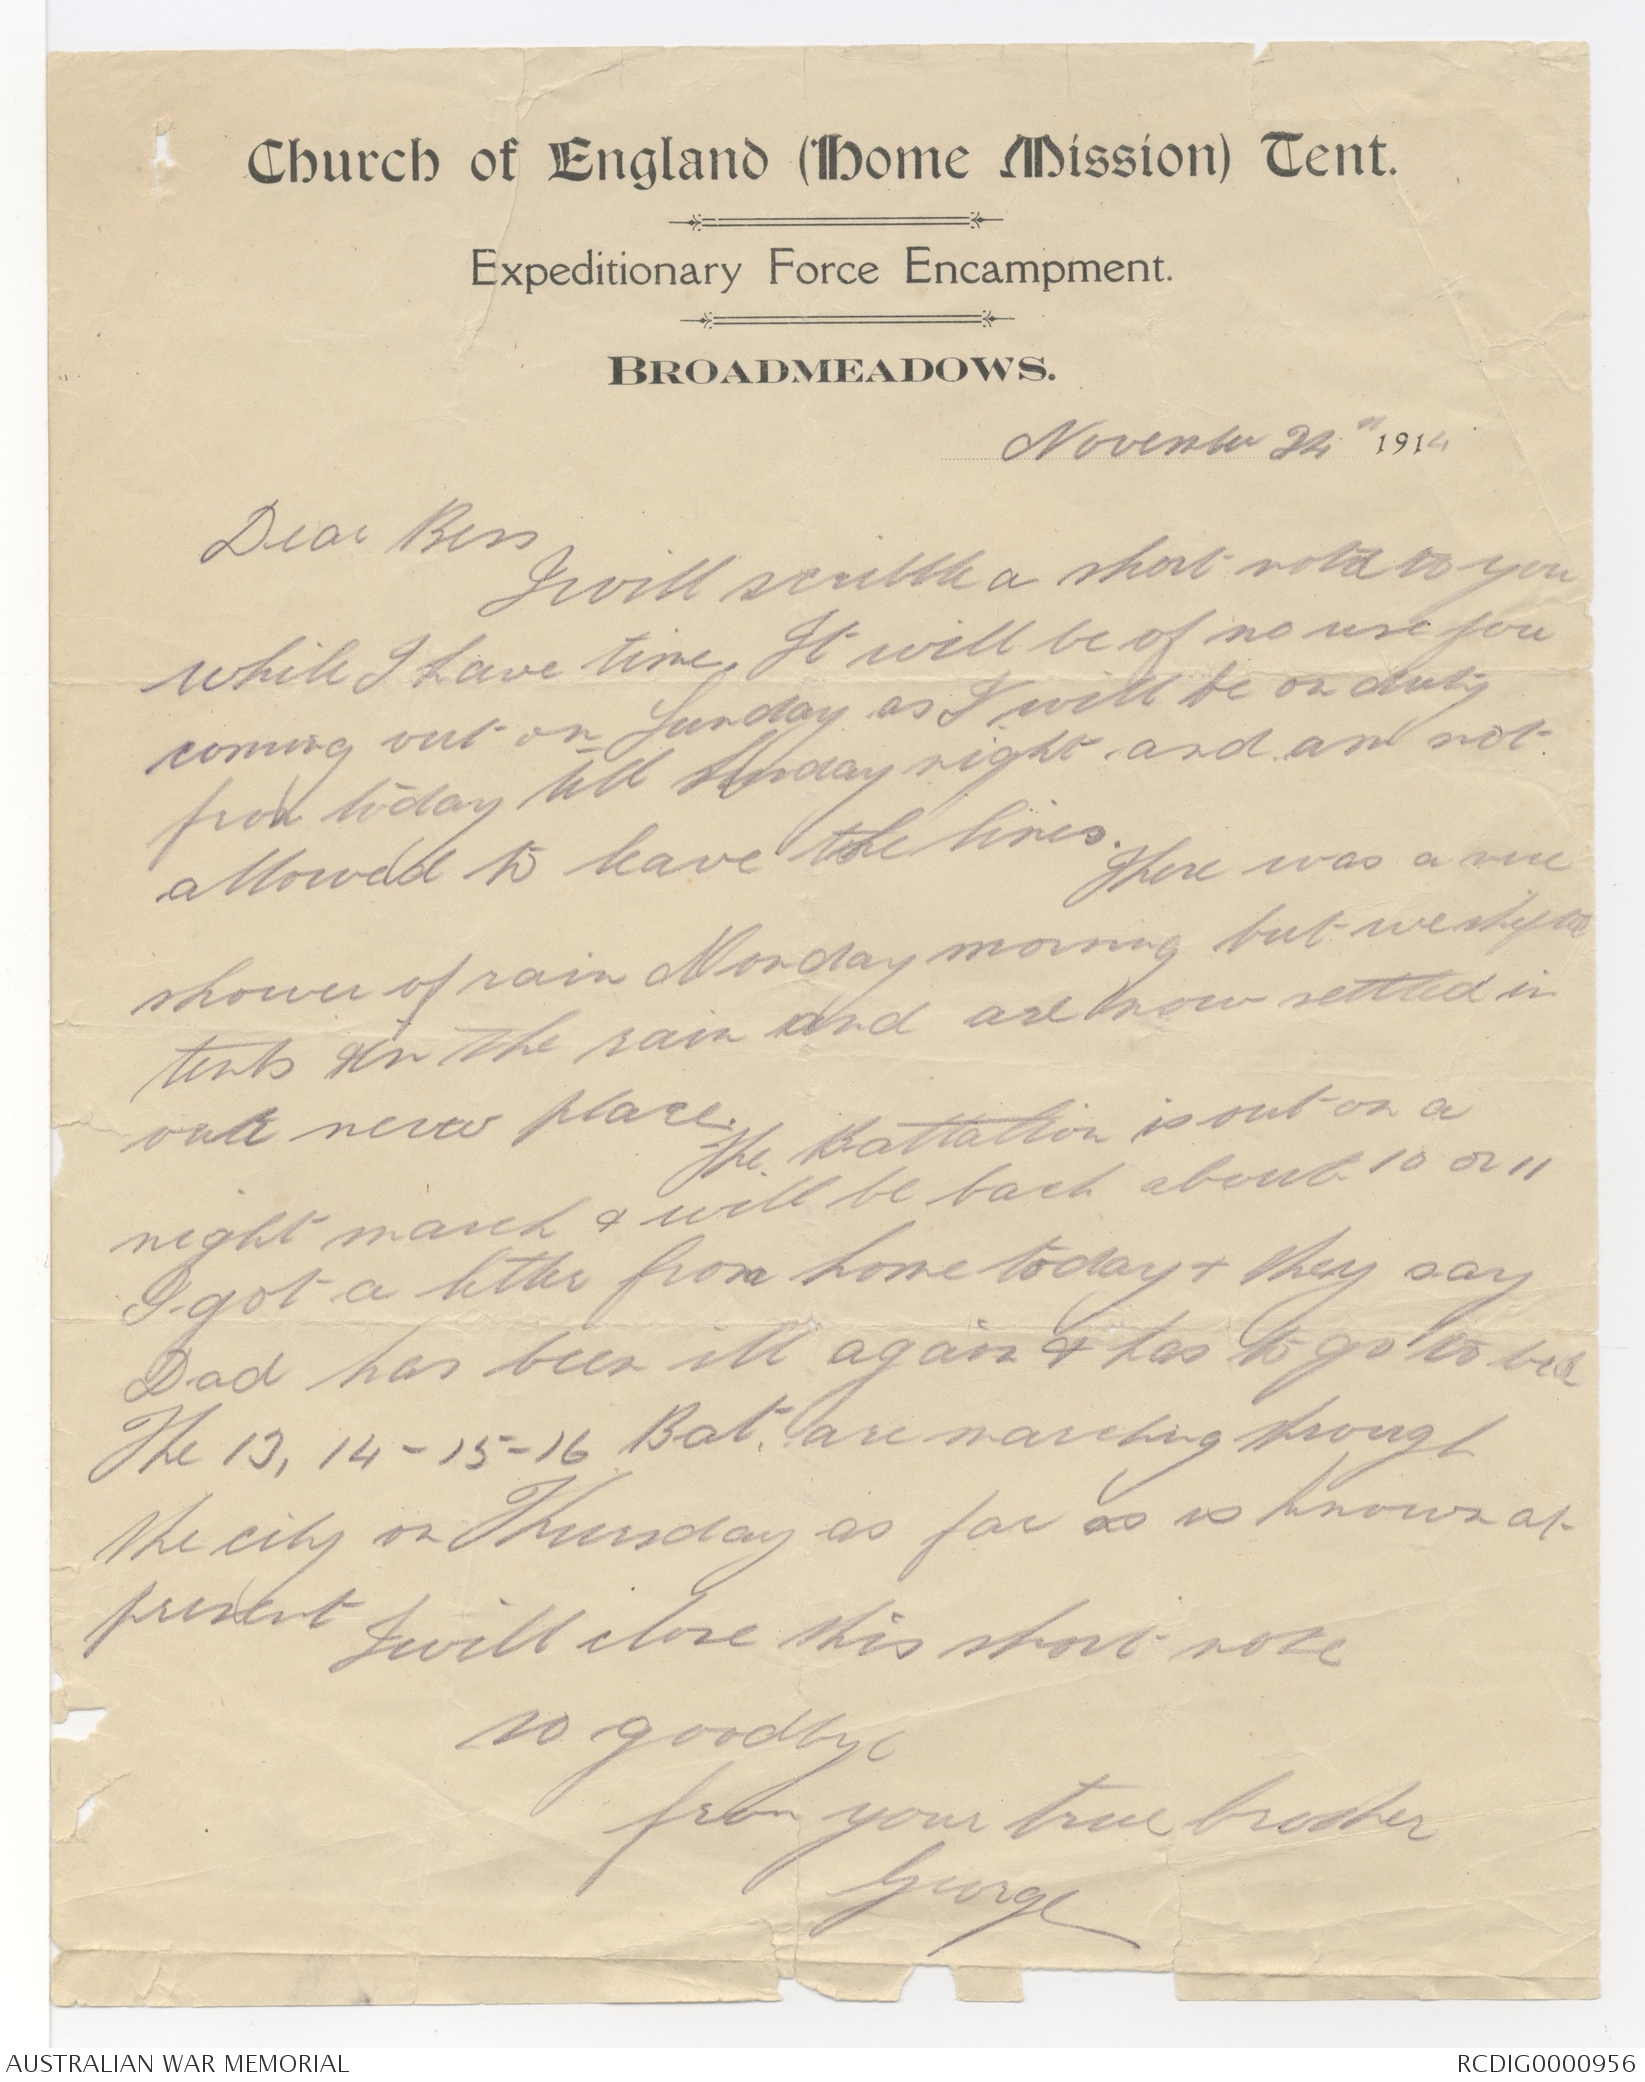 Church of England (Home Mission) Tent.
Expeditionary Force Encampment.
BROADMEADOWS.
November 24th 1914
Dear Bess
I will scribble a short note to you
while I have time. It will be of no use you
coming out on Sunday as I will be on duty
from today till Sunday night and am not
allowed to leave the lines.
There was a nice
shower of rain Monday morning but we shifted
tents in the rain and are now settled in
our new place.
The Battalion is out on a
night march & will be back about 10 or 11
I got a letter from home today & they say
Dad has been ill again & has to go to bed
The 13, 14-15-16 Bat. are marching through
the city on Thursday as far as is known at
present
I will close this short note
so goodbye
from your true brother
George
AUSTRALIAN WAR MEMORIAL
RCDIG0000956